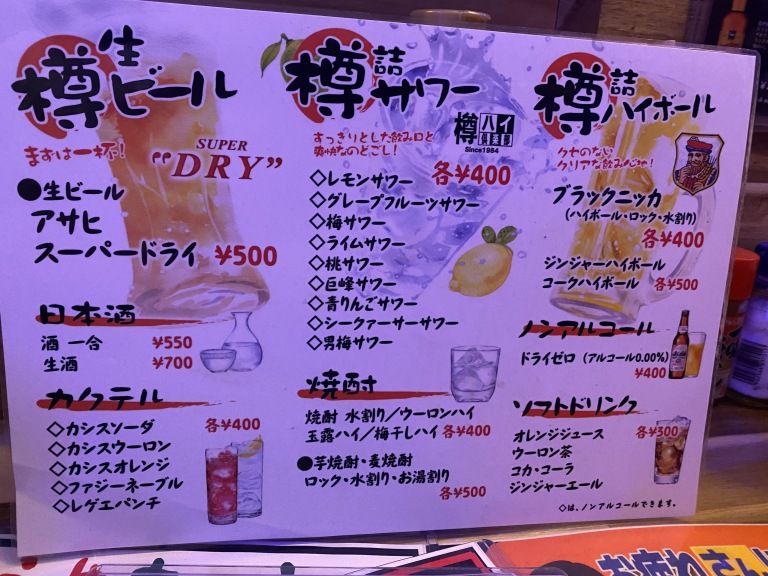 樽生ビール
まずは一杯!
SUPER
"DRY"
●生ビール
アサヒ
スーパードライ ¥500
日本酒
酒 一合 ¥550
生酒 ¥700
カクテル
各¥400
◇カシスソーダ
◇カシスウーロン
◇カシスオレンジ
◇ファジーネーブル
◇レゲエパンチ
樽詰サワー
すっきりとした飲み口と
爽快なのどごし!
樽ハイ倶楽部
Since1984
各¥400
◇レモンサワー
◇グレープフルーツサワー
◇梅サワー
◇ライムサワー
◇桃サワー
◇巨峰サワー
◇青りんごサワー
◇シークァーサーサワー
◇男梅サワー
焼酎
焼酎 水割り/ウーロンハイ
玉露ハイ/梅干しハイ 各¥400
●芋焼酎・麦焼酎
ロック・水割り・お湯割り
各¥500
樽詰ハイボール
クセのない
クリアな飲み心地!
ブラックニッカ
(ハイボール・ロック・水割り)
各¥400
ジンジャーハイボール
コークハイボール 各¥500
ノンアルコール
ドライゼロ (アルコール0.00%)
¥400
ソフトドリンク
各¥300
オレンジジュース
ウーロン茶
コカ・コーラ
ジンジャーエール
◇は、ノンアルコールできます。
お疲れさん